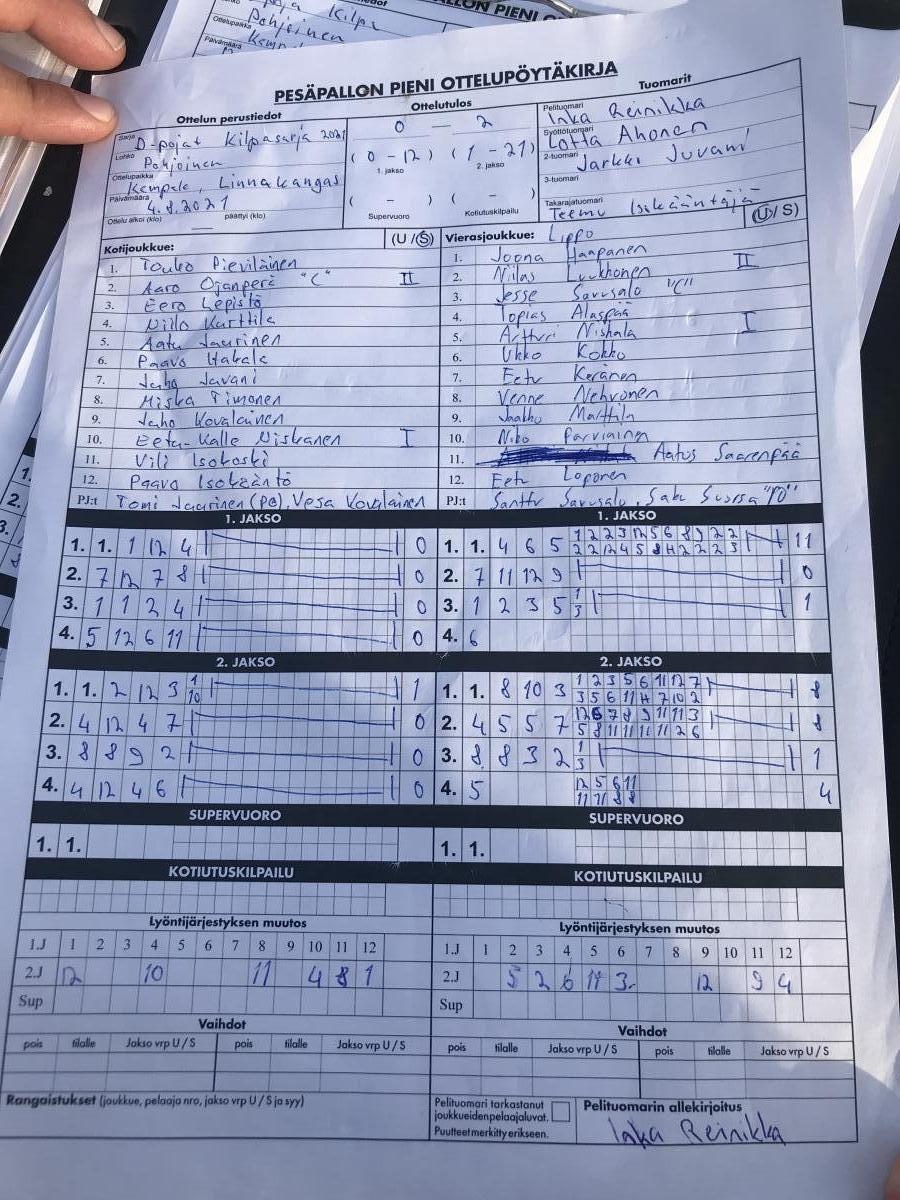 PESÄPALLON PIENI OTTELUPÖYTÄKIRJA
Ottelun perustiedot
Ottelutulos
Tuomarit
Sarja D-pojat Kilpasarja 2021
Lohko Pohjoinen
Ottelupaikka Kempele, Linnakangas
Päivämäärä 4.8.2021
Ottelu alkoi (klo) päättyi (klo)
0 — 2
(0 - 12) (1 - 21)
1. jakso 2. jakso
( - ) ( - )
Supervuoro Kotiutuskilpailu
Pelituomari Inka Reinikka
Syöttötuomari Lotta Ahonen
2-tuomari Jarkko Juvani
3-tuomari
Takarajatuomari Teemu Isokääntäjä
Kotijoukkue: (U / S)
1. Touko Pieviläinen
2. Aaro Ojanperä "C" II
3. Eero Lepistö
4. Niilo Karttila
5. Aatu Jaurinen
6. Paavo Hakala
7. Juho Javani
8. Miska Timonen
9. Juho Kovalainen
10. Eetu-Kalle Niskanen I
11. Vili Isokoski
12. Paavo Isokääntö
PJ:t Tomi Jaurinen (PO), Vesa Kovalainen
Vierasjoukkue: Lippo (U / S)
1. Joona Haapanen II
2. Niilas Luukkonen
3. Jesse Savusalo "C"
4. Topias Alaspää
5. Artturi Nishala I
6. Ukko Kokko
7. Eetu Keränen
8. Venne Nehvonen
9. Jaakko Marttila
10. Niko Parviainen
11. Aatus Saarenpää
12. Eetu Loponen
PJ:t Santtu Savusalo, Saku Suorsa "PO"
1. JAKSO
1. 1. 1 12 4 0
2. 7 12 7 8 0
3. 1 1 2 4 0
4. 5 12 6 11 0
2. JAKSO
1. 1. 2 12 3 1 1
10
2. 4 12 4 7 0
3. 8 8 9 2 0
4. 4 12 4 6 0
SUPERVUORO
1. 1.
KOTIUTUSKILPAILU
1. JAKSO
1. 1. 4 6 5 1 2 2 3 12 5 6 8 9 2 2 11
2 2 12 4 5 8 11 2 2 2 3
2. 7 11 12 9 0
3. 1 2 3 5 1 1
3
4. 6
2. JAKSO
1. 1. 8 10 3 1 2 3 5 6 11 12 7 8
3 5 6 11 11 7 10 2
2. 4 5 5 7 12 6 7 8 9 11 11 3 8
5 8 11 11 11 11 2 6
3. 8 8 3 2 1 1
3
4. 5 12 5 6 11 4
11 11 8 8
SUPERVUORO
1. 1.
KOTIUTUSKILPAILU
Lyöntijärjestyksen muutos
1.J 1 2 3 4 5 6 7 8 9 10 11 12
2.J 12 10 11 4 8 1
Sup
Vaihdot
pois tilalle Jakso vrp U / S pois tilalle Jakso vrp U / S
Lyöntijärjestyksen muutos
1.J 1 2 3 4 5 6 7 8 9 10 11 12
2.J 5 2 6 11 3 12 9 4
Sup
Vaihdot
pois tilalle Jakso vrp U / S pois tilalle Jakso vrp U / S
Rangaistukset (joukkue, pelaaja nro, jakso vrp U / S ja syy)
Pelituomari tarkastanut
joukkueiden pelaajaluvat.
Puutteet merkitty erikseen.
Pelituomarin allekirjoitus
Inka Reinikka